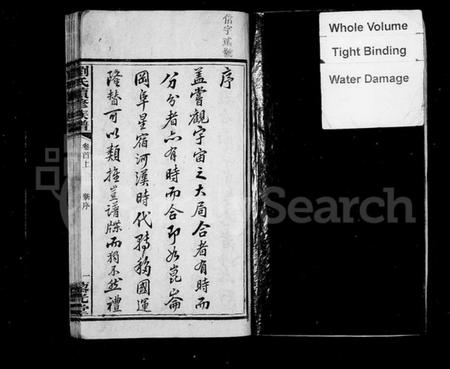 Whole Volume
Tight Binding
Water Damage
序
蓋嘗觀宇宙之大局合者有時而
分分者亦有時而合即如崑崙
岡阜星宿河漢時代轉移國運
隆替可以類推豈譜牒而獨不然禮
劉氏續修族譜
卷首上
舊序
一
Search